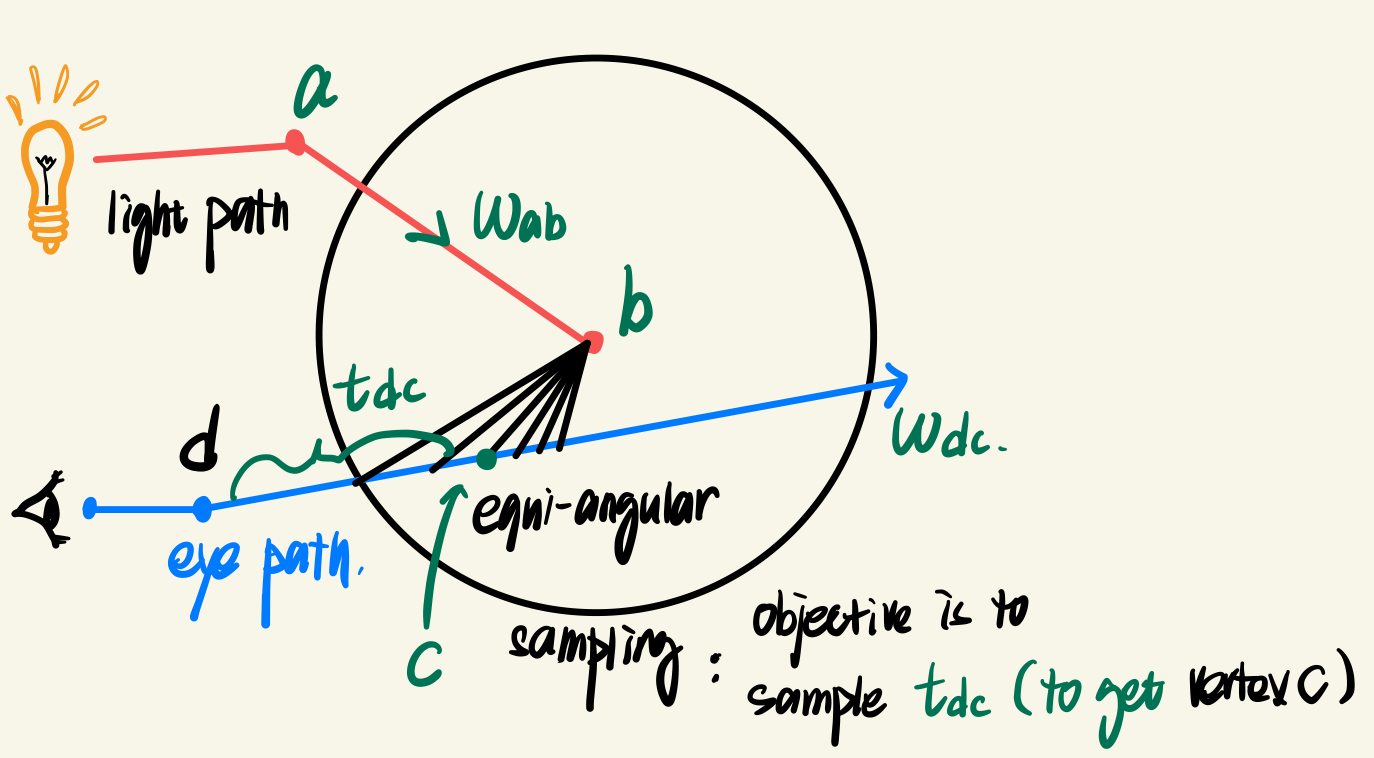 a
light path
Wab
b
tdc
d
Wdc.
equi-angular
eye path.
C
sampling : objective is to
sample tdc (to get vertex C)